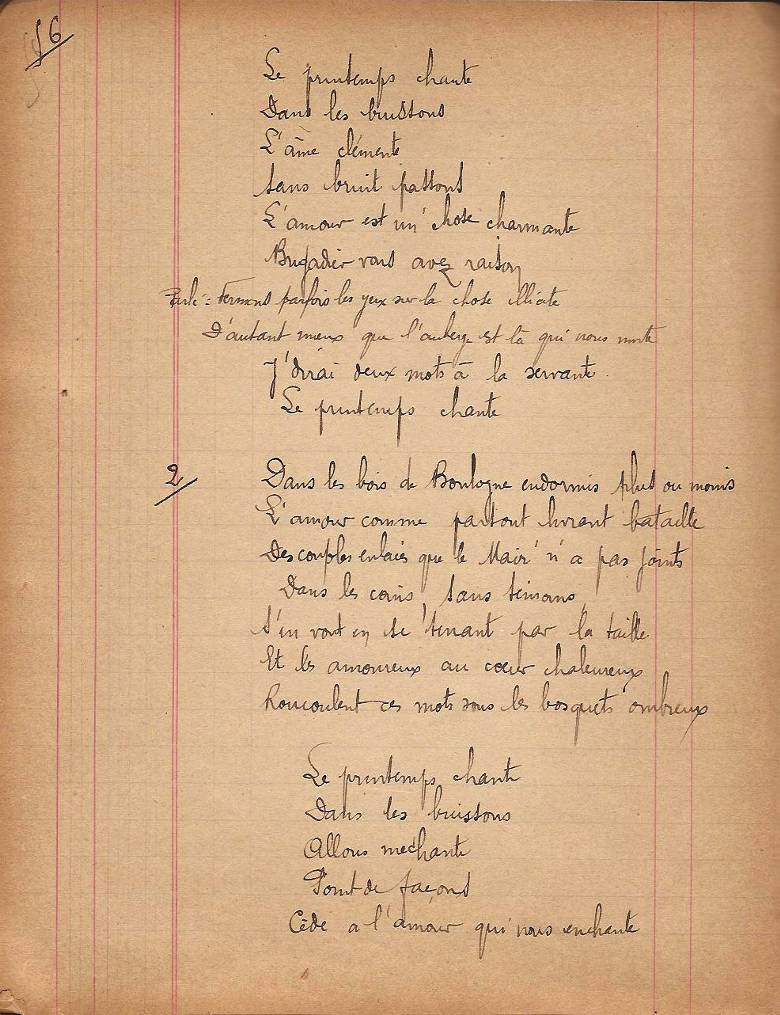 16
Le printemps chante
Dans les buissons
L'âme clémente
Sans bruit passons
L'amour est un' chose charmante
Brigadier vous avez raison
Parlé = Fermons parfois les yeux sur la chose illicite
D'autant mieux que l'auberge est là qui nous invite
J'dirai deux mots à la servante.
Le printemps chante
2 Dans les bois de Boulogne endormis plus ou moins
L'amour comme partout livrant bataille
Des couples enlacés que le Mair' n'a pas joints
Dans les coins, sans témoins,
S'en vont en se tenant par la taille
Et les amoureux au cœur chaleureux
Roucoulent ces mots sous les bosquets ombreux
Le printemps chante
Dans les buissons
Allons méchante
Point de façons
Cède a l'amour qui nous enchante